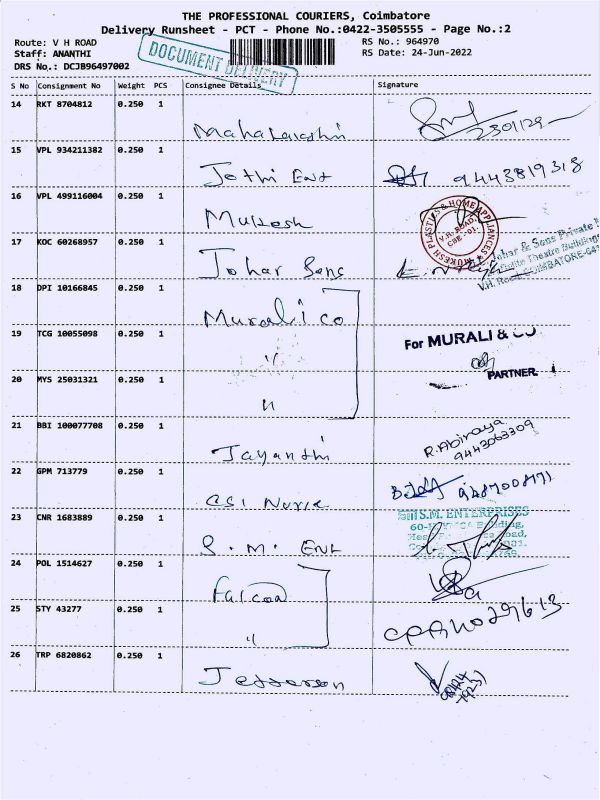 THE PROFESSIONAL COURIERS, Coimbatore
Delivery Runsheet - PCT - Phone No.:0422-3505555 - Page No.:2
Route: V H ROAD RS No.: 964970
Staff: ANANTHI RS Date: 24-Jun-2022
DRS No.: DCJB96497002
DOCUMENT DELIVERY
S No Consignment No Weight PCS Consignee Details Signature
14 RKT 8704812 0.250 1
Mahalakshmi
15 VPL 934211382 0.250 1
Jothi Ent 9443819318
16 VPL 499116004 0.250 1
Mukesh
MUKESH PLASTICS & HOME APPLIANCES
V.H. ROAD,
CBE - 01.
17 KOC 60268957 0.250 1
Johar Sons
Johar & Sons Private
Theatre Buildings
V.H. Road, COIMBATORE-641
18 DPI 10166845 0.250 1
Murali co
19 TCG 10055098 0.250 1
"
For MURALI & CO
PARTNER.
20 MYS 25031321 0.250 1
"
21 BBI 100077708 0.250 1
Jayanthi
R. Abiraya
9443063309
22 GPM 713779 0.250 1
CSI
23 CNR 1683889 0.250 1
S. M. Ent
S.M. ENTERPRISES
24 POL 1514627 0.250 1
Falcon
25 STY 43277 0.250 1
"
26 TRP 6820862 0.250 1
Jefferson